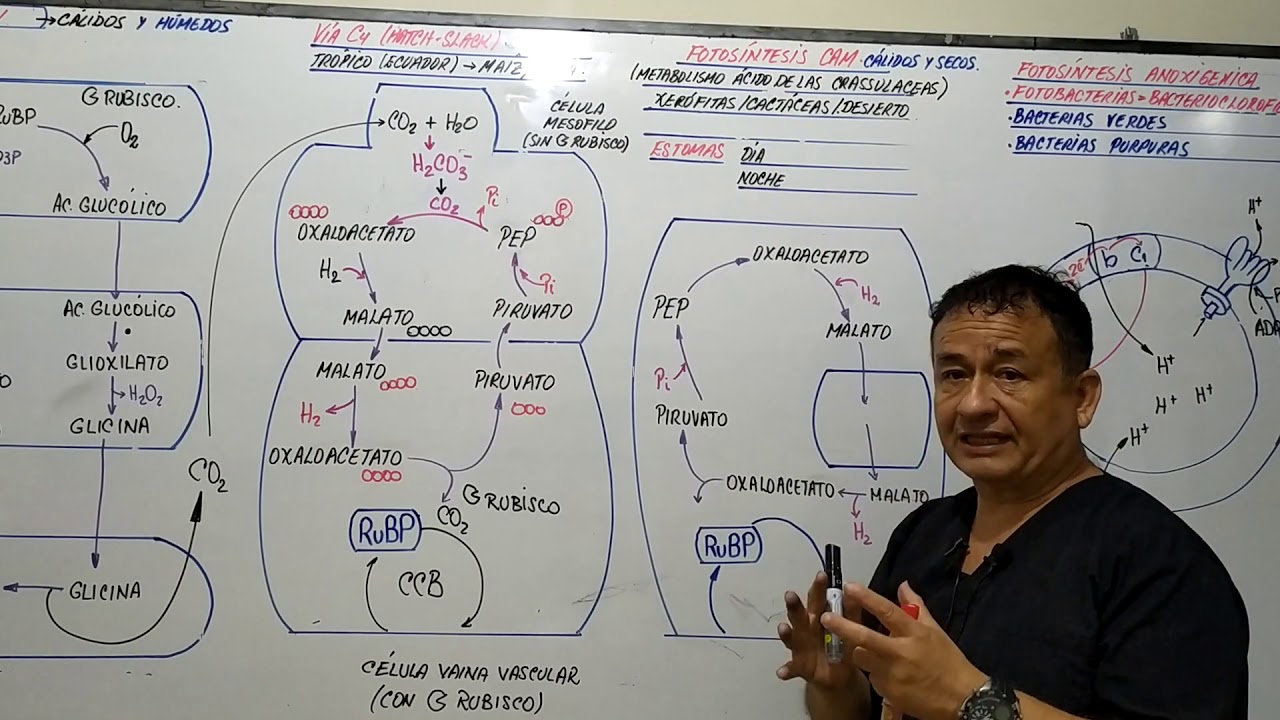 →CÁLIDOS Y HÚMEDOS
RUBISCO.
RUBP
O2
AC. GLUCÓLICO
AC. GLUCÓLICO
GLIOXILATO
→H2O2
GLICINA
GLICINA
CO2
VÍA C4 (HATCH-SLACK).
TRÓPICO (ECUADOR)→MAÍZ,
CÉLULA
MESOFILO
(SIN RUBISCO)
CO2 + H2O
H2CO3-
CO2
Pi
P
OXALOACETATO
PEP
H2
Pi
MALATO
PIRUVATO
MALATO
PIRUVATO
H2
OXALOACETATO
RUBISCO
CO2
RuBP
CCB
CÉLULA VAINA VASCULAR
(CON RUBISCO)
FOTOSÍNTESIS CAM CÁLIDOS Y SECOS.
(METABOLISMO ÁCIDO DE LAS CRASSULACEAS)
XERÓFITAS/CACTÁCEAS/DESIERTO
ESTOMAS DÍA
NOCHE
OXALOACETATO
H2
PEP
MALATO
Pi
PIRUVATO
OXALOACETATO ← MALATO
H2
RuBP
FOTOSÍNTESIS ANOXIGENICA
•FOTOBACTERIAS=BACTERIOCLOROFI
•BACTERIAS VERDES
•BACTERIAS PURPURAS
H+
2e-
b C1
H+
H+
H+
H+